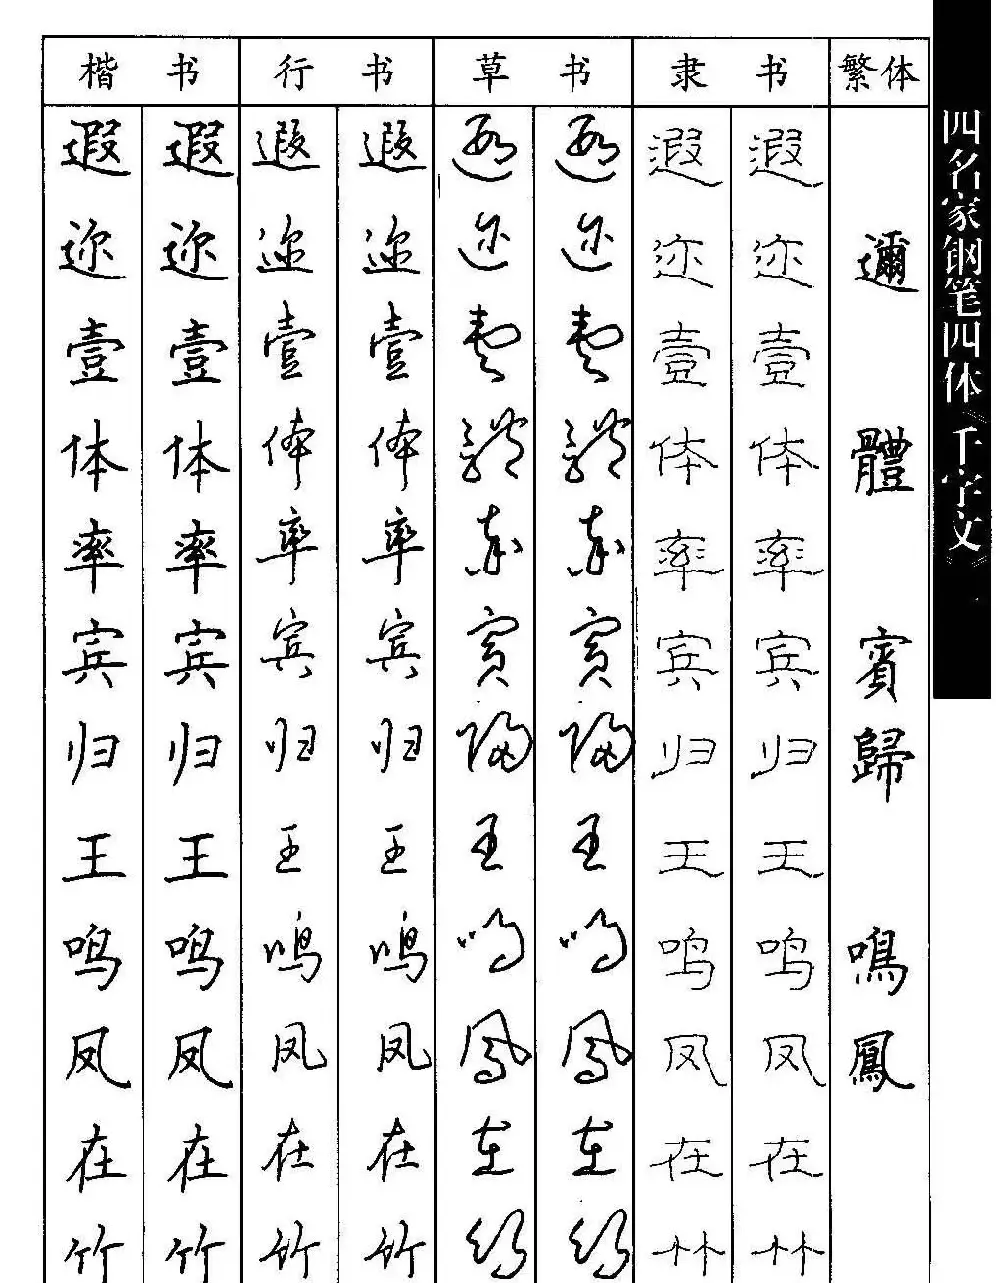 楷书 行书 草书 隶书 繁体
遐 遐 遐 遐 遐 遐 遐 遐
迩 迩 迩 迩 迩 迩 迩 迩 邇
壹 壹 壹 壹 壹 壹 壹 壹
体 体 体 体 體 體 体 体 體
率 率 率 率 率 率 率 率
宾 宾 宾 宾 賓 賓 宾 宾 賓
归 归 归 归 歸 歸 归 归 歸
王 王 王 王 王 王 王 王
鸣 鸣 鸣 鸣 鸣 鸣 鸣 鸣 鳴
凤 凤 凤 凤 鳳 鳳 凤 凤 鳳
在 在 在 在 在 在 在 在
竹 竹 竹 竹 竹 竹 竹 竹
四名家钢笔四体《千字文》